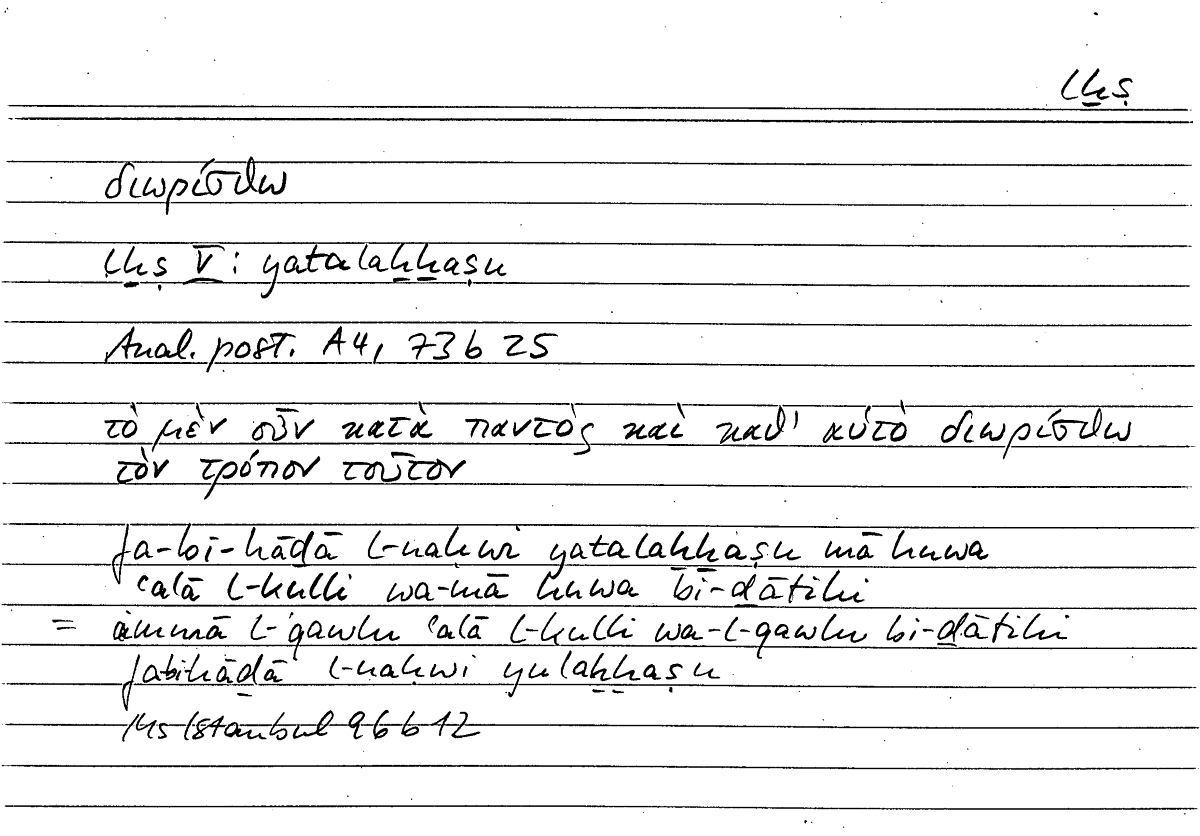 lḫṣ
διωρίσθω
lḫṣ V: yatalaḫḫaṣu
Anal. post. A4, 73 b 25
τὸ μὲν οὖν κατὰ παντὸς καὶ καθ' αὑτὸ διωρίσθω
τὸν τρόπον τοῦτον
fa-bi-hāḏā l-naḥwi yatalaḫḫaṣu mā huwa
ʿalā l-kulli wa-mā huwa bi-ḏātihi
= ammā l-qawlu ʿalā l-kulli wa-l-qawlu bi-ḏātihi
fabihāḏā l-naḥwi yulaḫḫaṣu
Ms Istanbul 96 b 12